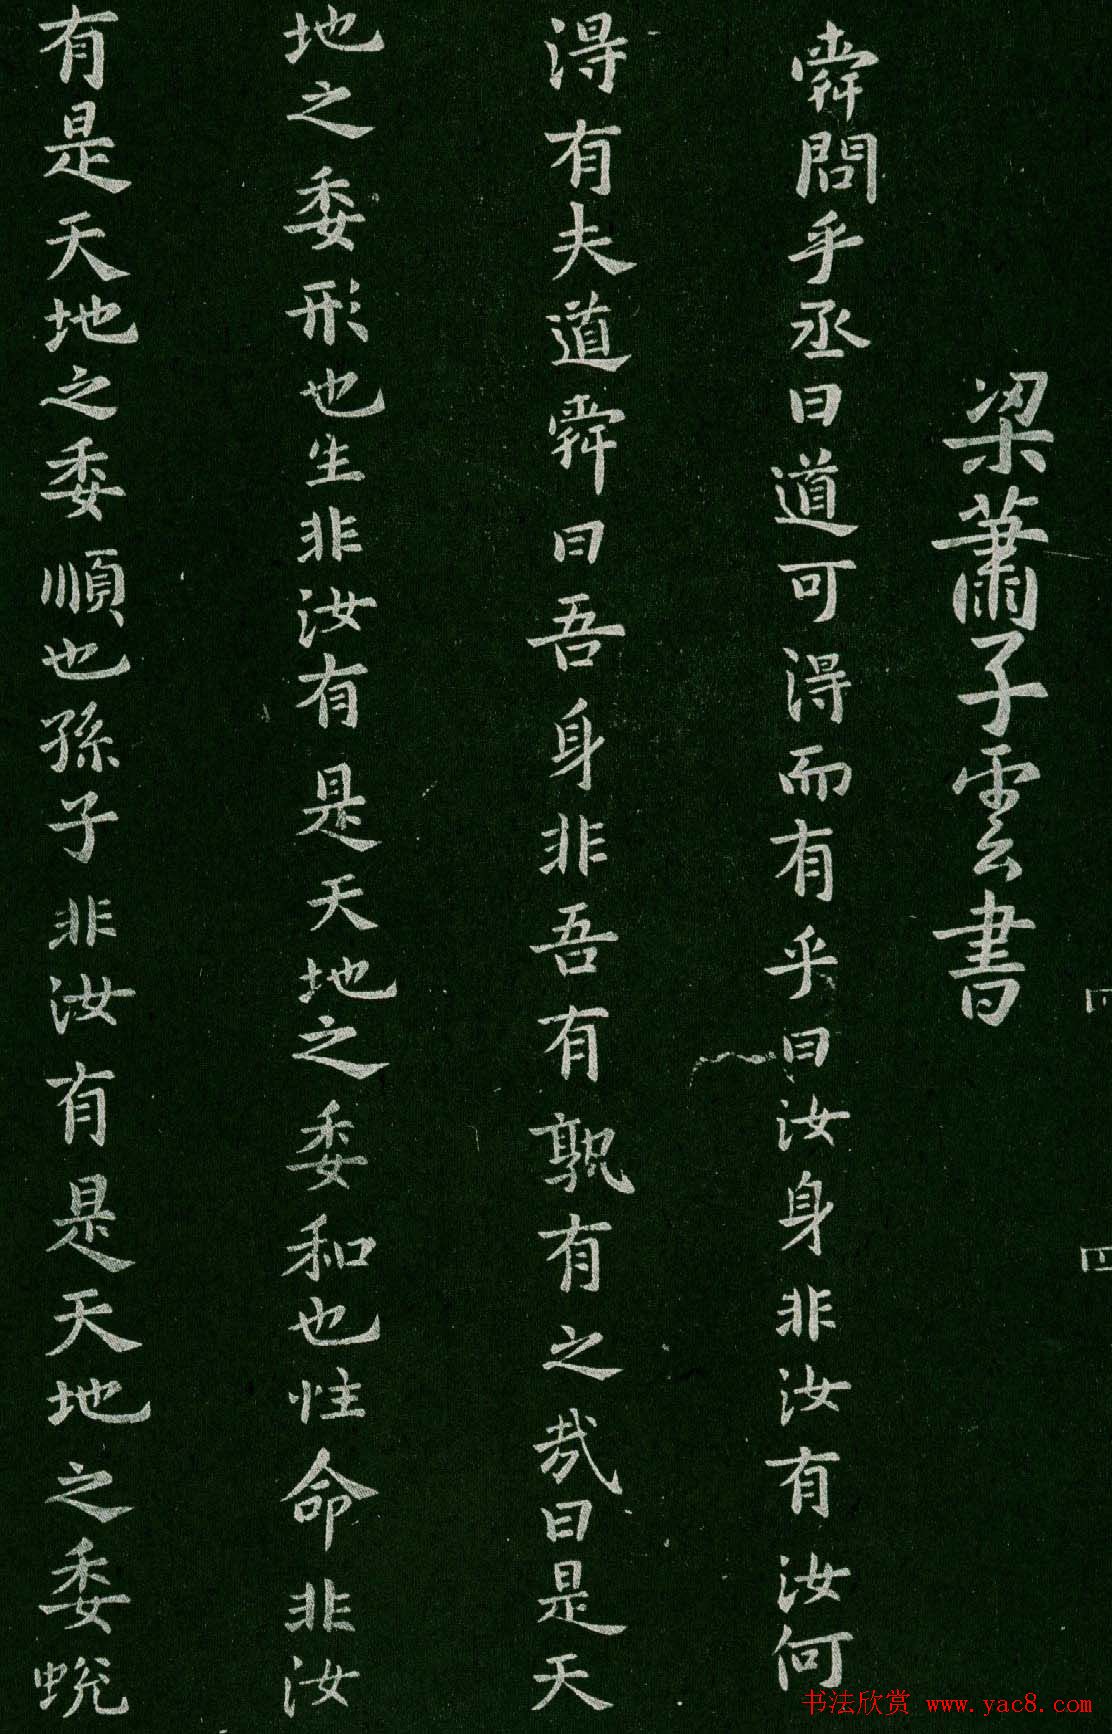 梁蕭子雲書
舜問乎丞曰道可得而有乎曰汝身非汝有汝何
得有夫道舜曰吾身非吾有孰有之哉曰是天
地之委形也生非汝有是天地之委和也性命非汝
有是天地之委順也孫子非汝有是天地之委蛻
书法欣赏 www.yac8.com